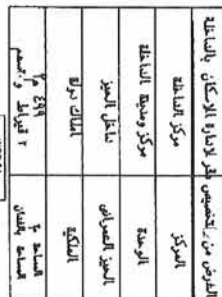 الغرض من التخصيص مقر لادارة الاسكان بالداخلة
المركز مركز الداخلة
الوحدة مركز ومدينة الداخلة
الحيز العمراني داخل الحيز
الملكية املاك دولة
المساحة م٢ ٤٩٩ م٢
المساحة بالفدان ٢ قيراط و سهم